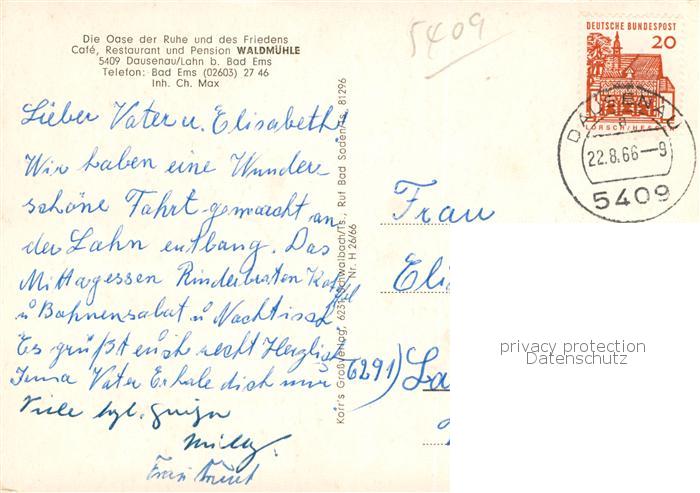 5409
Die Oase der Ruhe und des Friedens
Café, Restaurant und Pension WALDMÜHLE
5409 Dausenau/Lahn b. Bad Ems
Telefon: Bad Ems (02603) 27 46
Inh. Ch. Max
DEUTSCHE BUNDESPOST
20
LORSCH/HESSEN
DAUSENAU
a
22.8.66—9
5409
Lieber Vater u. Elisabeth
Wir haben eine Wunder
schöne Fahrt gemacht an
der Lahn entlang. Das
Mittagessen Rinderbraten
u Bohnensalat u Nachtisch
Es grüßt euch recht Herzlich
Vater Erhole dich nur
Viele
Willy
Frau
Korr's Großverlag, 6231 Schwalbach/Ts., Ruf Bad Soden/Ts. 81296
Nr. H 26/66
Frau
Eli
6291) La
privacy protection
Datenschutz